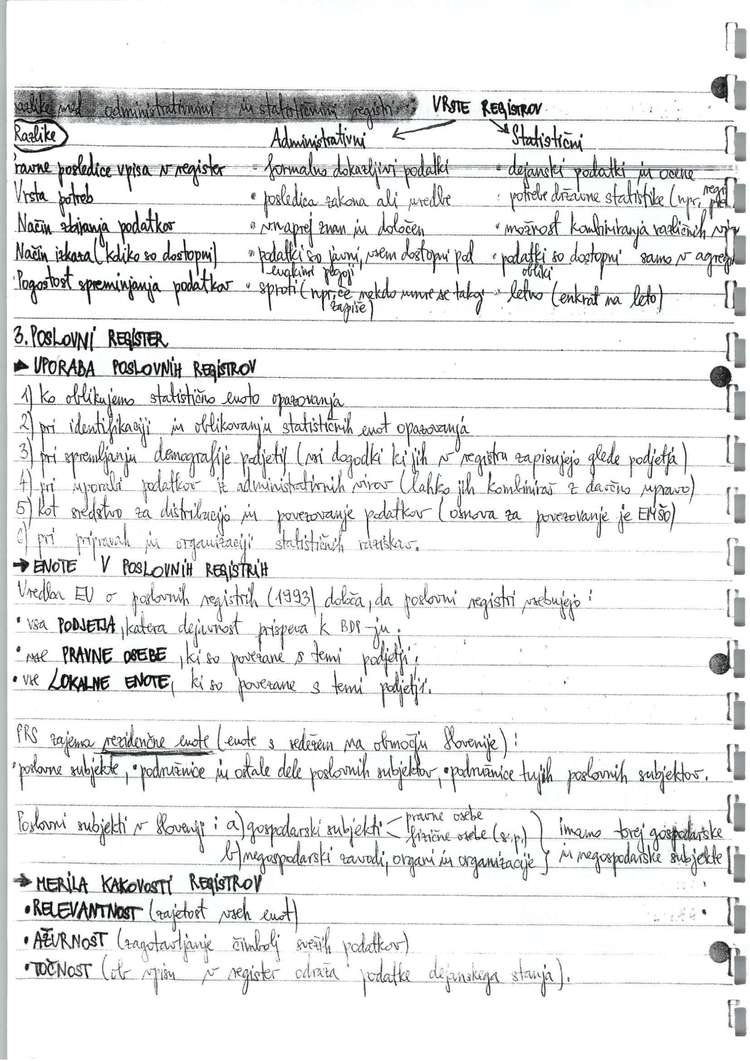 razlike med administrativnimi in statističnimi registri: VRSTE REGISTROV
Razlike Administrativni Statistični
ravne posledice vpisa v register • formalno dokazljivi podatki • dejanski podatki in ocene
Vrsta potreb • posledica zakona ali uredbe • potrebe državne statistike (npr.
Način zbiranja podatkov • vnaprej znan in določen • možnost kombiniranja različnih
Način izkaza (kdiko so dostopni) • podatki so javni, vsem dostopni pod • podatki so dostopni samo v agreg
enakimi pogoji obliki
Pogostost spreminjanja podatkov • sproti (npr. če nekdo umre se takoj • letno (enkrat na leto)
zapiše)
3. POSLOVNI REGISTER
UPORABA POSLOVNIH REGISTROV
1) ko oblikujemo statistično enoto opazovanja
2) pri identifikaciji in oblikovanju statističnih enot opazovanja
3) pri spremljanju demografije podjetij (vsi dogodki ki jih v registru zapisujejo glede podjetja)
4) pri uporabi podatkov iz administrativnih virov (lahko jih kombiniraš z davčno upravo)
5) kot sredstvo za distribucijo in povezovanje podatkov (osnova za povezovanje je EMŠO)
6) pri pripravah in organizaciji statističnih raziskav.
→ ENOTE V POSLOVNIH REGISTRIH
Uredba EU o poslovnih registrih (1993) določa, da poslovni registri vsebujejo:
• vsa PODJETJA, katera dejavnost prispeva k BDP-ju;
• vse PRAVNE OSEBE, ki so povezane s temi podjetji;
• vse LOKALNE ENOTE, ki so povezane s temi podjetji.
PRS zajema rezidenčne enote (enote s sedežem na območju Slovenije):
• poslovne subjekte, • podružnice in ostale dele poslovnih subjektov, • podružnice tujih poslovnih subjektov.
Poslovni subjekti v Sloveniji: a) gospodarski subjekti < pravne osebe
fizične osebe (s.p.) } imamo torej gospodarske
b) negospodarski zavodi, organi in organizacije } in negospodarske subjekte
→ MERILA KAKOVOSTI REGISTROV
• RELEVANTNOST (zajetost vseh enot)
• AŽURNOST (zagotavljanje čimbolj svežih podatkov)
• TOČNOST (ob vpisu v register odraža podatke dejanskega stanja).